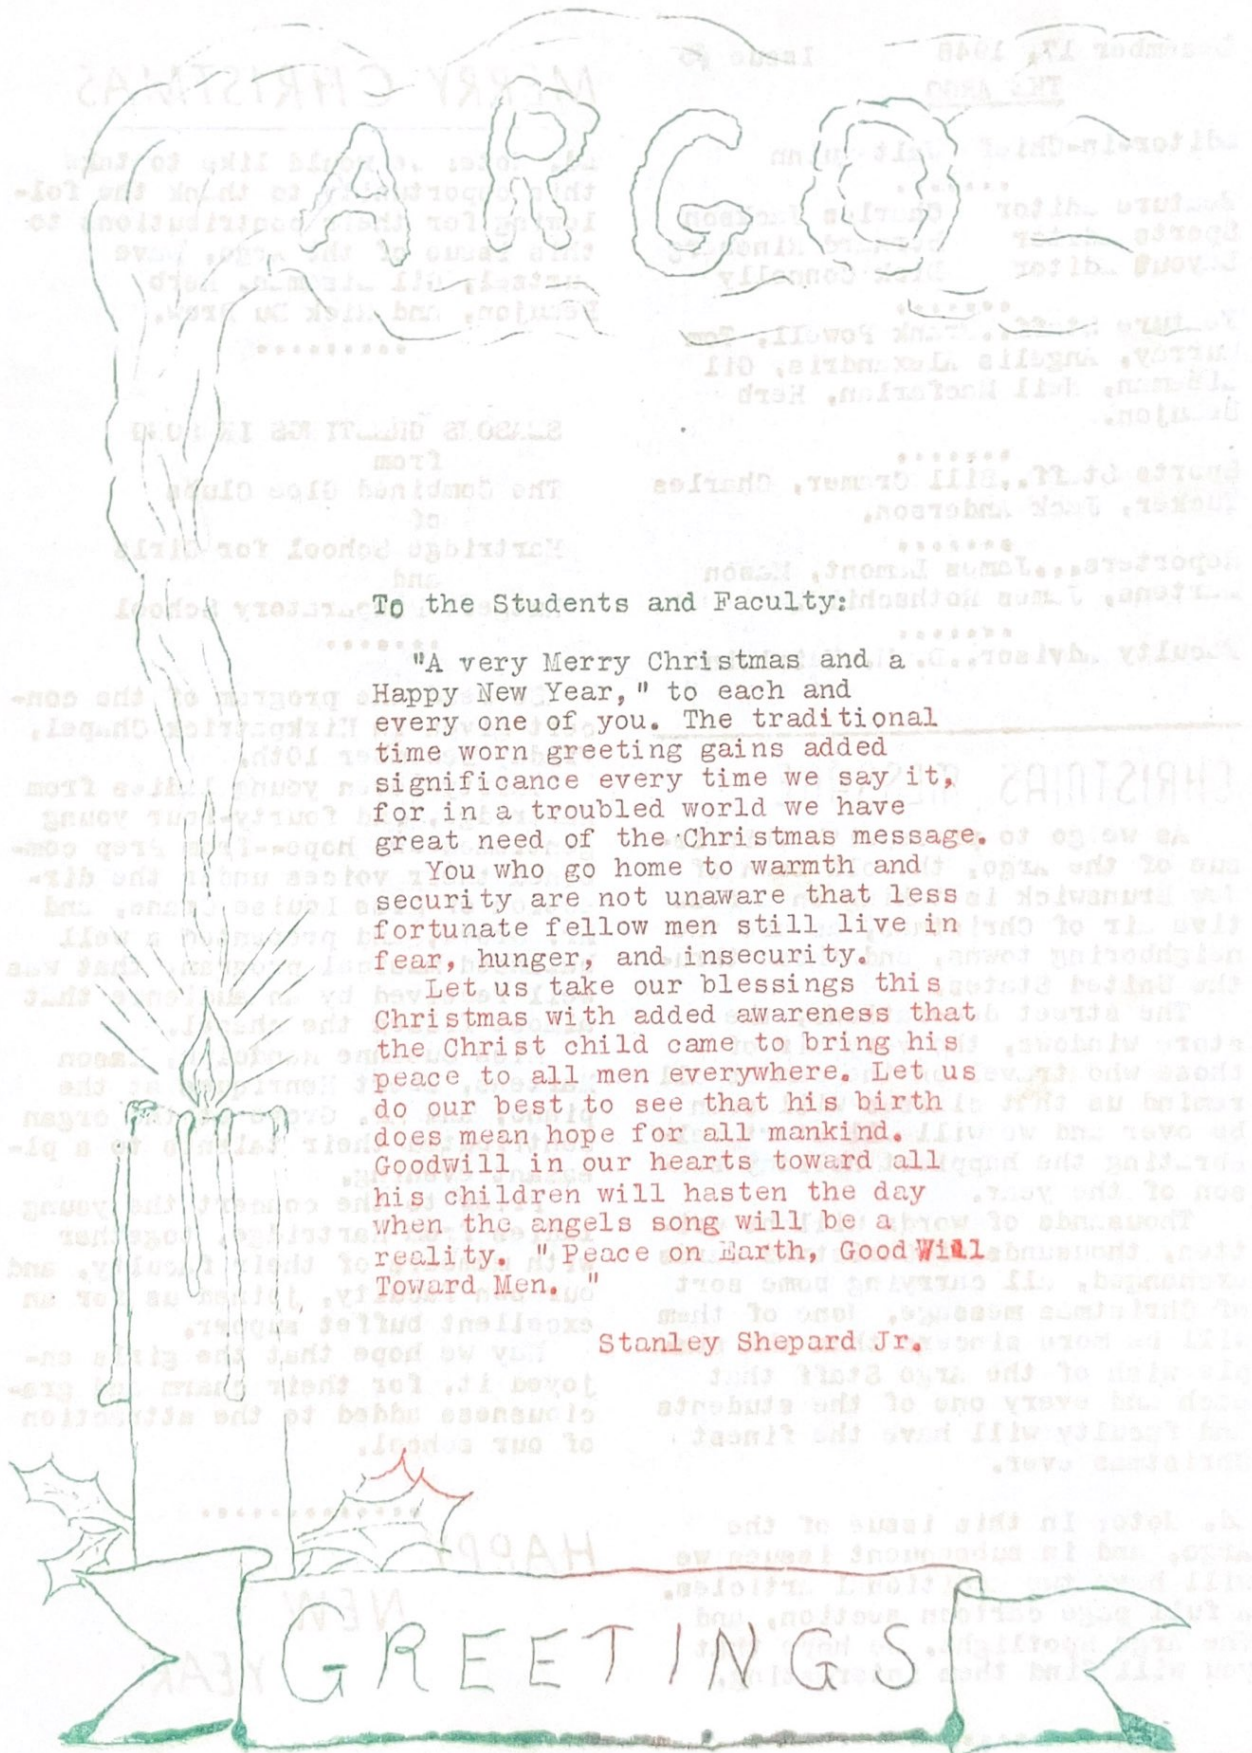 ARGO
To the Students and Faculty:
"A very Merry Christmas and a
Happy New Year," to each and
every one of you. The traditional
time worn greeting gains added
significance every time we say it,
for in a troubled world we have
great need of the Christmas message.
You who go home to warmth and
security are not unaware that less
fortunate fellow men still live in
fear, hunger, and insecurity.
Let us take our blessings this
Christmas with added awareness that
the Christ child came to bring his
peace to all men everywhere. Let us
do our best to see that his birth
does mean hope for all mankind.
Goodwill in our hearts toward all
his children will hasten the day
when the angels song will be a
reality. "Peace on Earth, Good Will
Toward Men. "
Stanley Shepard Jr.
GREETINGS